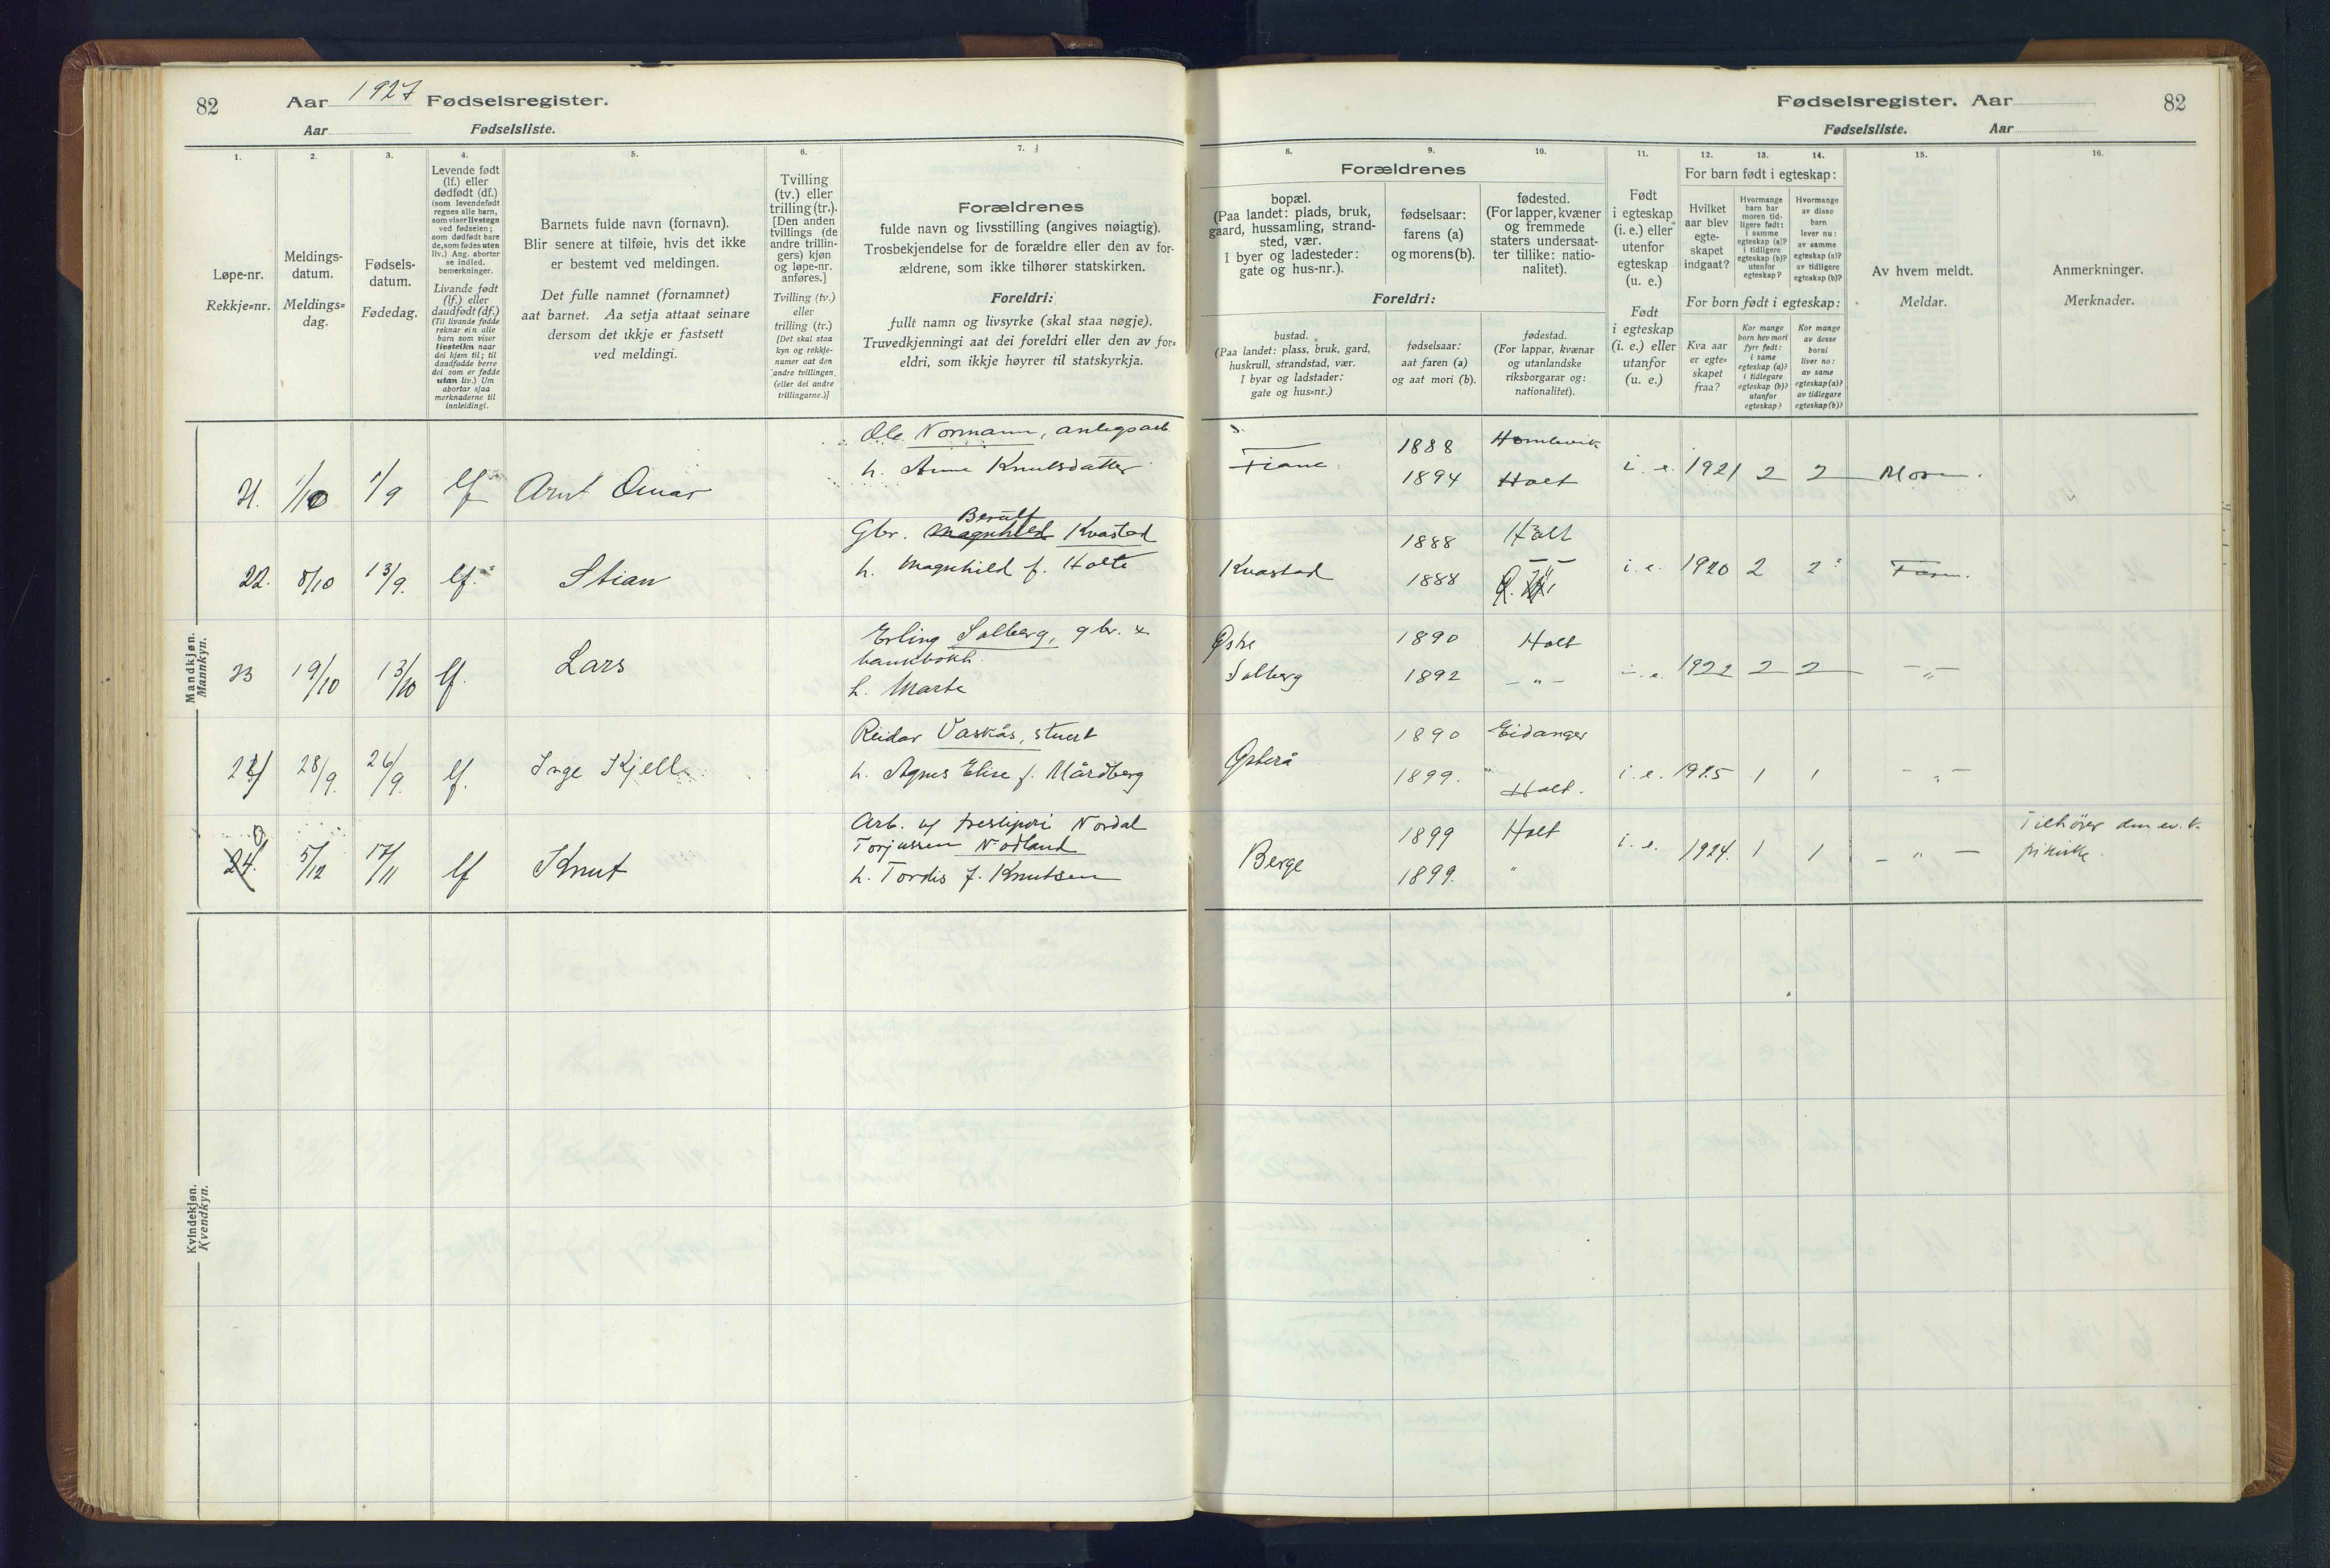 82 Aar 1927 Fødselsregister.
Aar Fødselsliste.
Fødselsregister. Aar 82
Fødselsliste. Aar
1. 2. 3. 4. 5. 6. 7. 8. 9. 10. 11. 12. 13. 14. 15. 16.
Løpe-nr.
Rekkje=nr.
Meldings-
datum.
Meldings=
dag.
Fødsels-
datum.
Fødedag.
Levende født
(lf.) eller
dødfødt (df.)
(som levendefødt
regnes alle barn,
som viser livstegn
ved fødselen;
som dødfødt bare
de, som fødes uten
liv.) Ang. aborter
se indled.
bemerkninger.
Livande født
(lf.) eller
daudfødt (df.)
(Til livande fødde
reknar ein alle
barn som viser
livsteikn naar
dei kjem til; til
daudfødde berre
dei som er fødde
utan liv.) Um
abortar sjaa
merknaderne til
innleidingi.
Barnets fulde navn (fornavn).
Blir senere at tilføie, hvis det ikke
er bestemt ved meldingen.
Det fulle namnet (fornamnet)
aat barnet. Aa setja attaat seinare
dersom det ikkje er fastsett
ved meldingi.
Tvilling
(tv.) eller
trilling (tr.).
[Den anden
tvillings (de
andre trillin-
gers) kjøn
og løpe-nr.
anføres.]
Tvilling (tv.)
eller
trilling (tr.)
[Det skal staa
kyn og rekkje-
numer aat den
andre tvillingen,
(eller dei andre
trillingarne.)]
Forældrenes
fulde navn og livsstilling (angives nøiagtig).
Trosbekjendelse for de forældre eller den av for-
ældrene, som ikke tilhører statskirken.
Foreldri:
fullt namn og livsyrke (skal staa nøgje).
Truvedkjenningi aat dei foreldri eller den av for=
eldri, som ikkje høyrer til statskyrkja.
Forældrenes
bopæl.
(Paa landet: plads, bruk,
gaard, hussamling, strand-
sted, vær.
I byer og ladesteder:
gate og hus-nr.).
fødselsaar:
farens (a)
og morens (b).
fødested.
(For lapper, kvæner
og fremmede
staters undersaat-
ter tillike: natio-
nalitet).
Foreldri:
bustad.
(Paa landet: plass, bruk, gard,
huskrull, strandstad, vær.
I byar og ladstader:
gate og hus=nr.)
fødselsaar:
aat faren (a)
og aat mori (b).
fødestad.
(For lappar, kvænar
og utanlandske
riksborgarar og:
nationalitet).
Født
i egteskap
(i. e.) eller
utenfor
egteskap
(u. e.)
Født
i egteskap
(i. e.) eller
utanfor
(u. e.)
For barn født i egteskap:
Hvilket
aar blev
egte-
skapet
indgaat?
Hvormange
barn har
moren tid-
ligere født:
i samme
egteskap (a)?
i tidligere
egteskap (b)?
utenfor
egteskap?
Hvormange
av disse
barn
lever nu:
av samme
egteskap (a)?
av tidligere
egteskap (b)?
For born født i egteskap:
Kva aar
er egte=
skapet
fraa?
Kor mange
born hev mori
fyrr født:
i same
egteskap (a)?
i tidlegare
egteskap (b)?
utanfor
egteskap?
Kor mange
av desse
borni
liver no:
av same
egteskap (a)?
av tidlegare
egteskap (b)?
Av hvem meldt.
Meldar.
Anmerkninger.
Merknader.
Mandkjøn.
Mannkyn.
21. 1/10 1/9 lf Arnt Omar
Ole Normann, anlegsarb.
h. Anne Knutsdatter
Fiane 1888 1894 Holt i. e. 1921 2 2 Moren.
22. 8/10 13/9. lf. Stian
Gbr. Magnhild Kvastad
h. Magnhild f. Holte
Kvastad 1888 Holt
1888 i. e. 1920 2 2
23 19/10 13/10 lf. Lars
Erling Solberg, gbr. &
bankbokh.
h. Marte
Østre Solberg 1890 Holt
1892 – „ – i. e. 1922 2 2 – „ –
28/9. 26/9. lf. Inge Kjell
Reidar Vaskås, stuert
h. Agnes Elise f. Mårdberg
Østerå 1890 Eidanger
1899. Holt. i. e. 1925 1 1 – „ –
24. 5/12 17/11 lf Knut
Arb. og Nordal
Torjussen Nødland
h. Tordis f. Knutsen
Berge 1899 Holt
1899. " i. e. 1924. 1 1 – „ –
Tilhører den ev. l.
frikirke.
Kvindekjøn.
Kvendkyn.